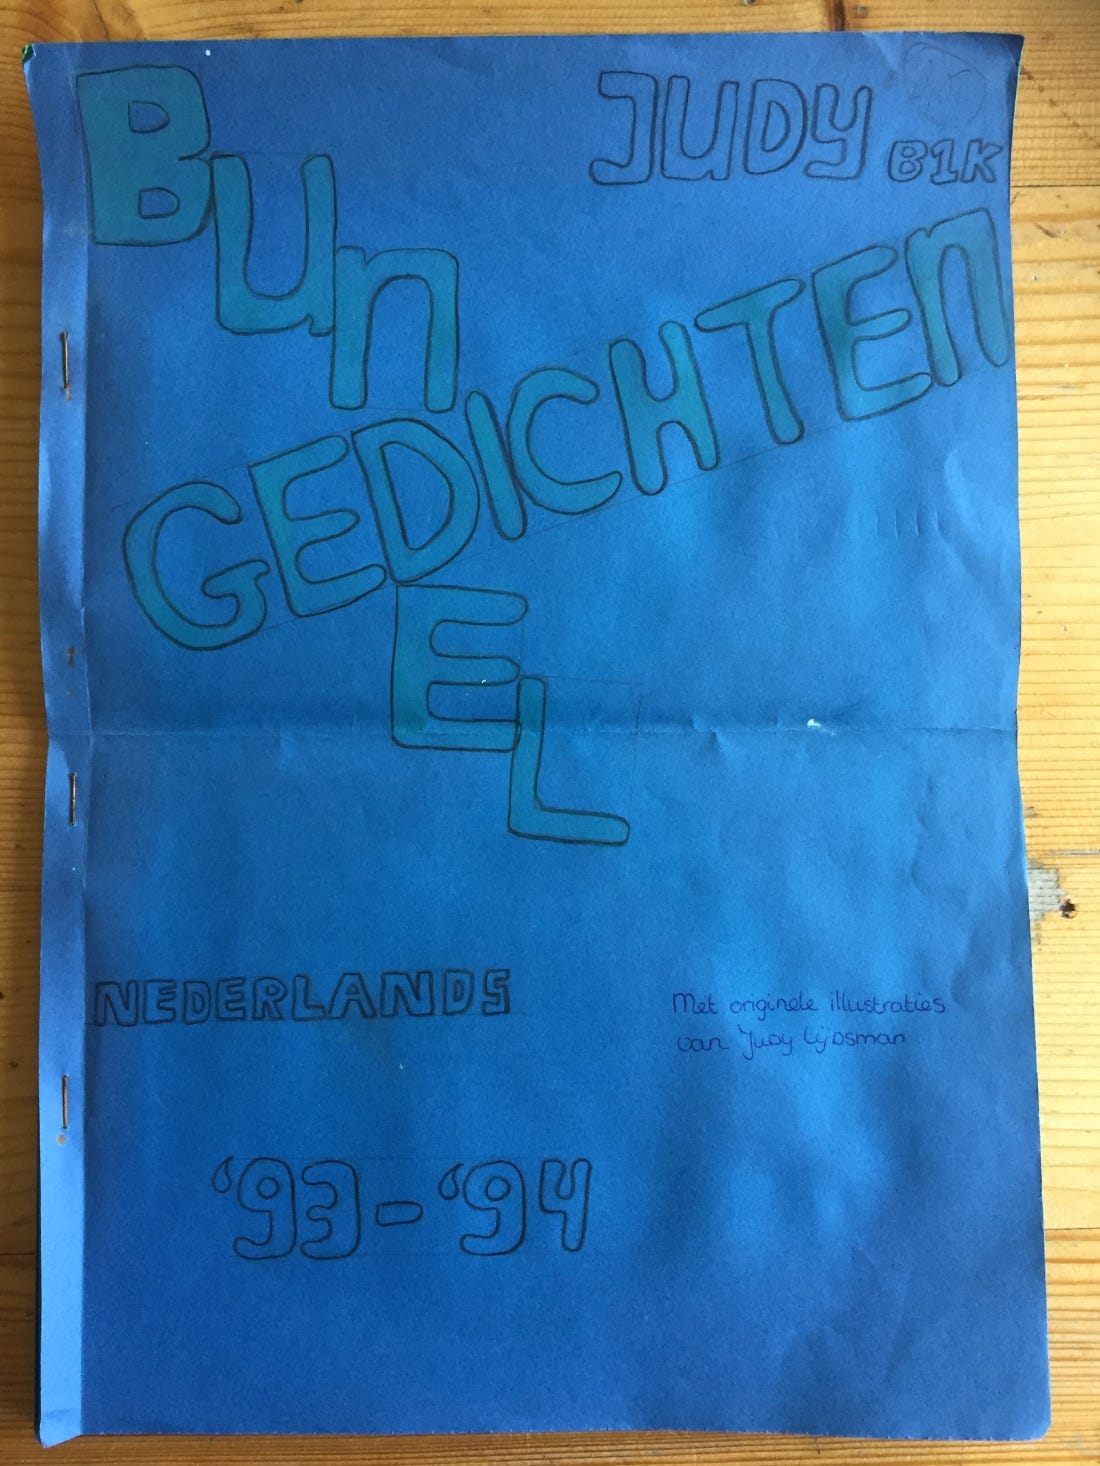 JUDY B1K
Bun
GEDICHTEn
EL
NEDERLANDS
Met originele illustraties
van Judy Lijdsman
'93-'94